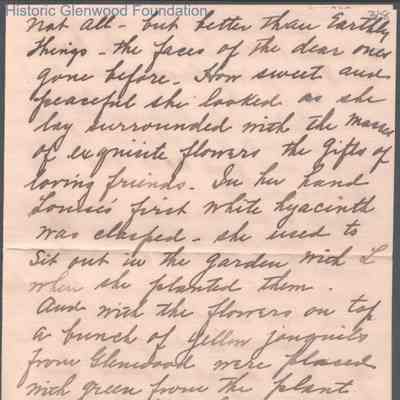 Historic Glenwood Foundation
not all - but better than Earthly
things - the faces of the dear ones
gone before - How sweet and
peaceful she looked as she
lay surrounded with the masses
of exquisite flowers the gifts of
loving friends - In her hand
Louise's first white hyacinth
was clasped - she used to
Sit out in the garden with L
when she planted them.
And with the flowers on top
a bunch of yellow jonquils
from Glenwood were placed
with green from the plant